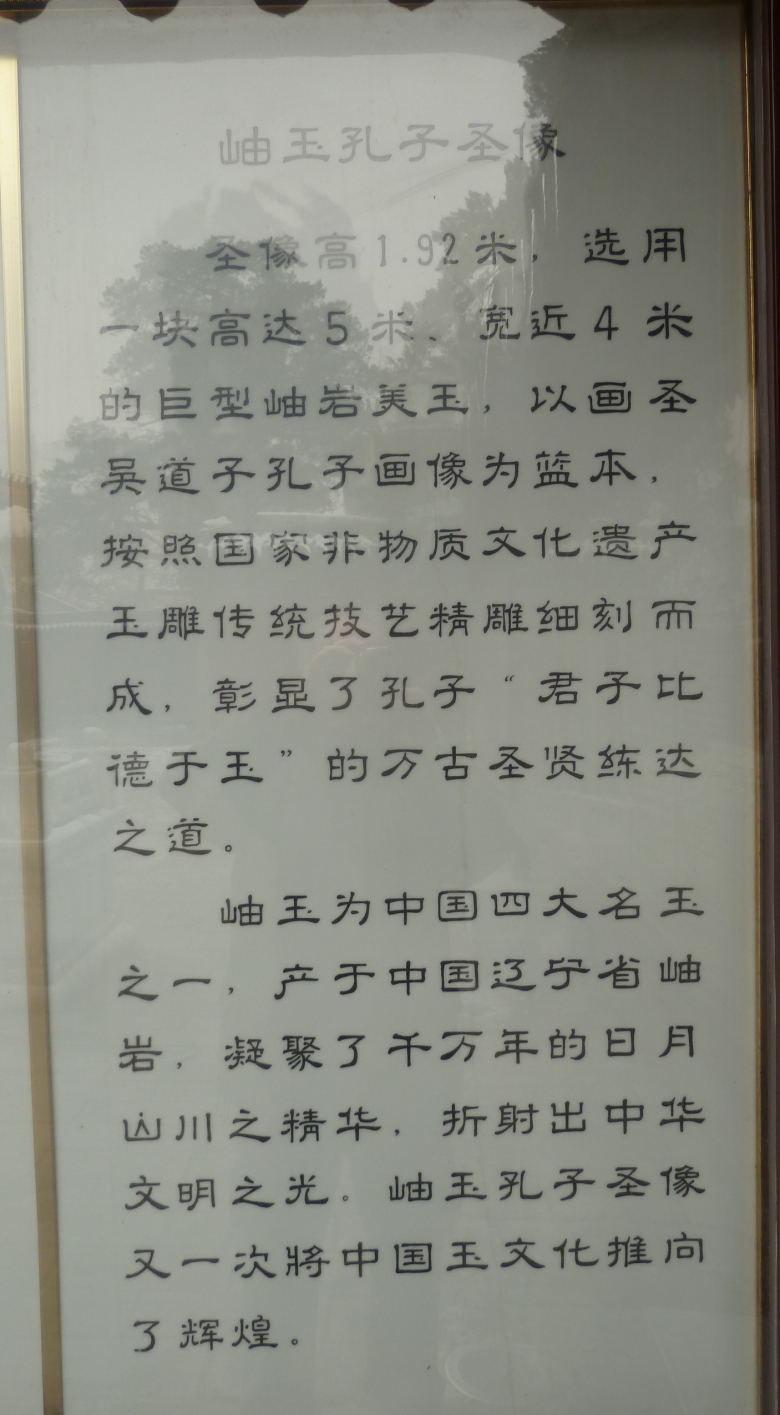 岫玉孔子圣像
圣像高1.92米，选用
一块高达5米、宽近4米
的巨型岫岩美玉，以画圣
吴道子孔子画像为蓝本，
按照国家非物质文化遗产
玉雕传统技艺精雕细刻而
成，彰显了孔子“君子比
德于玉”的万古圣贤练达
之道。
岫玉为中国四大名玉
之一，产于中国辽宁省岫
岩，凝聚了千万年的日月
山川之精华，折射出中华
文明之光。岫玉孔子圣像
又一次將中国玉文化推向
了辉煌。